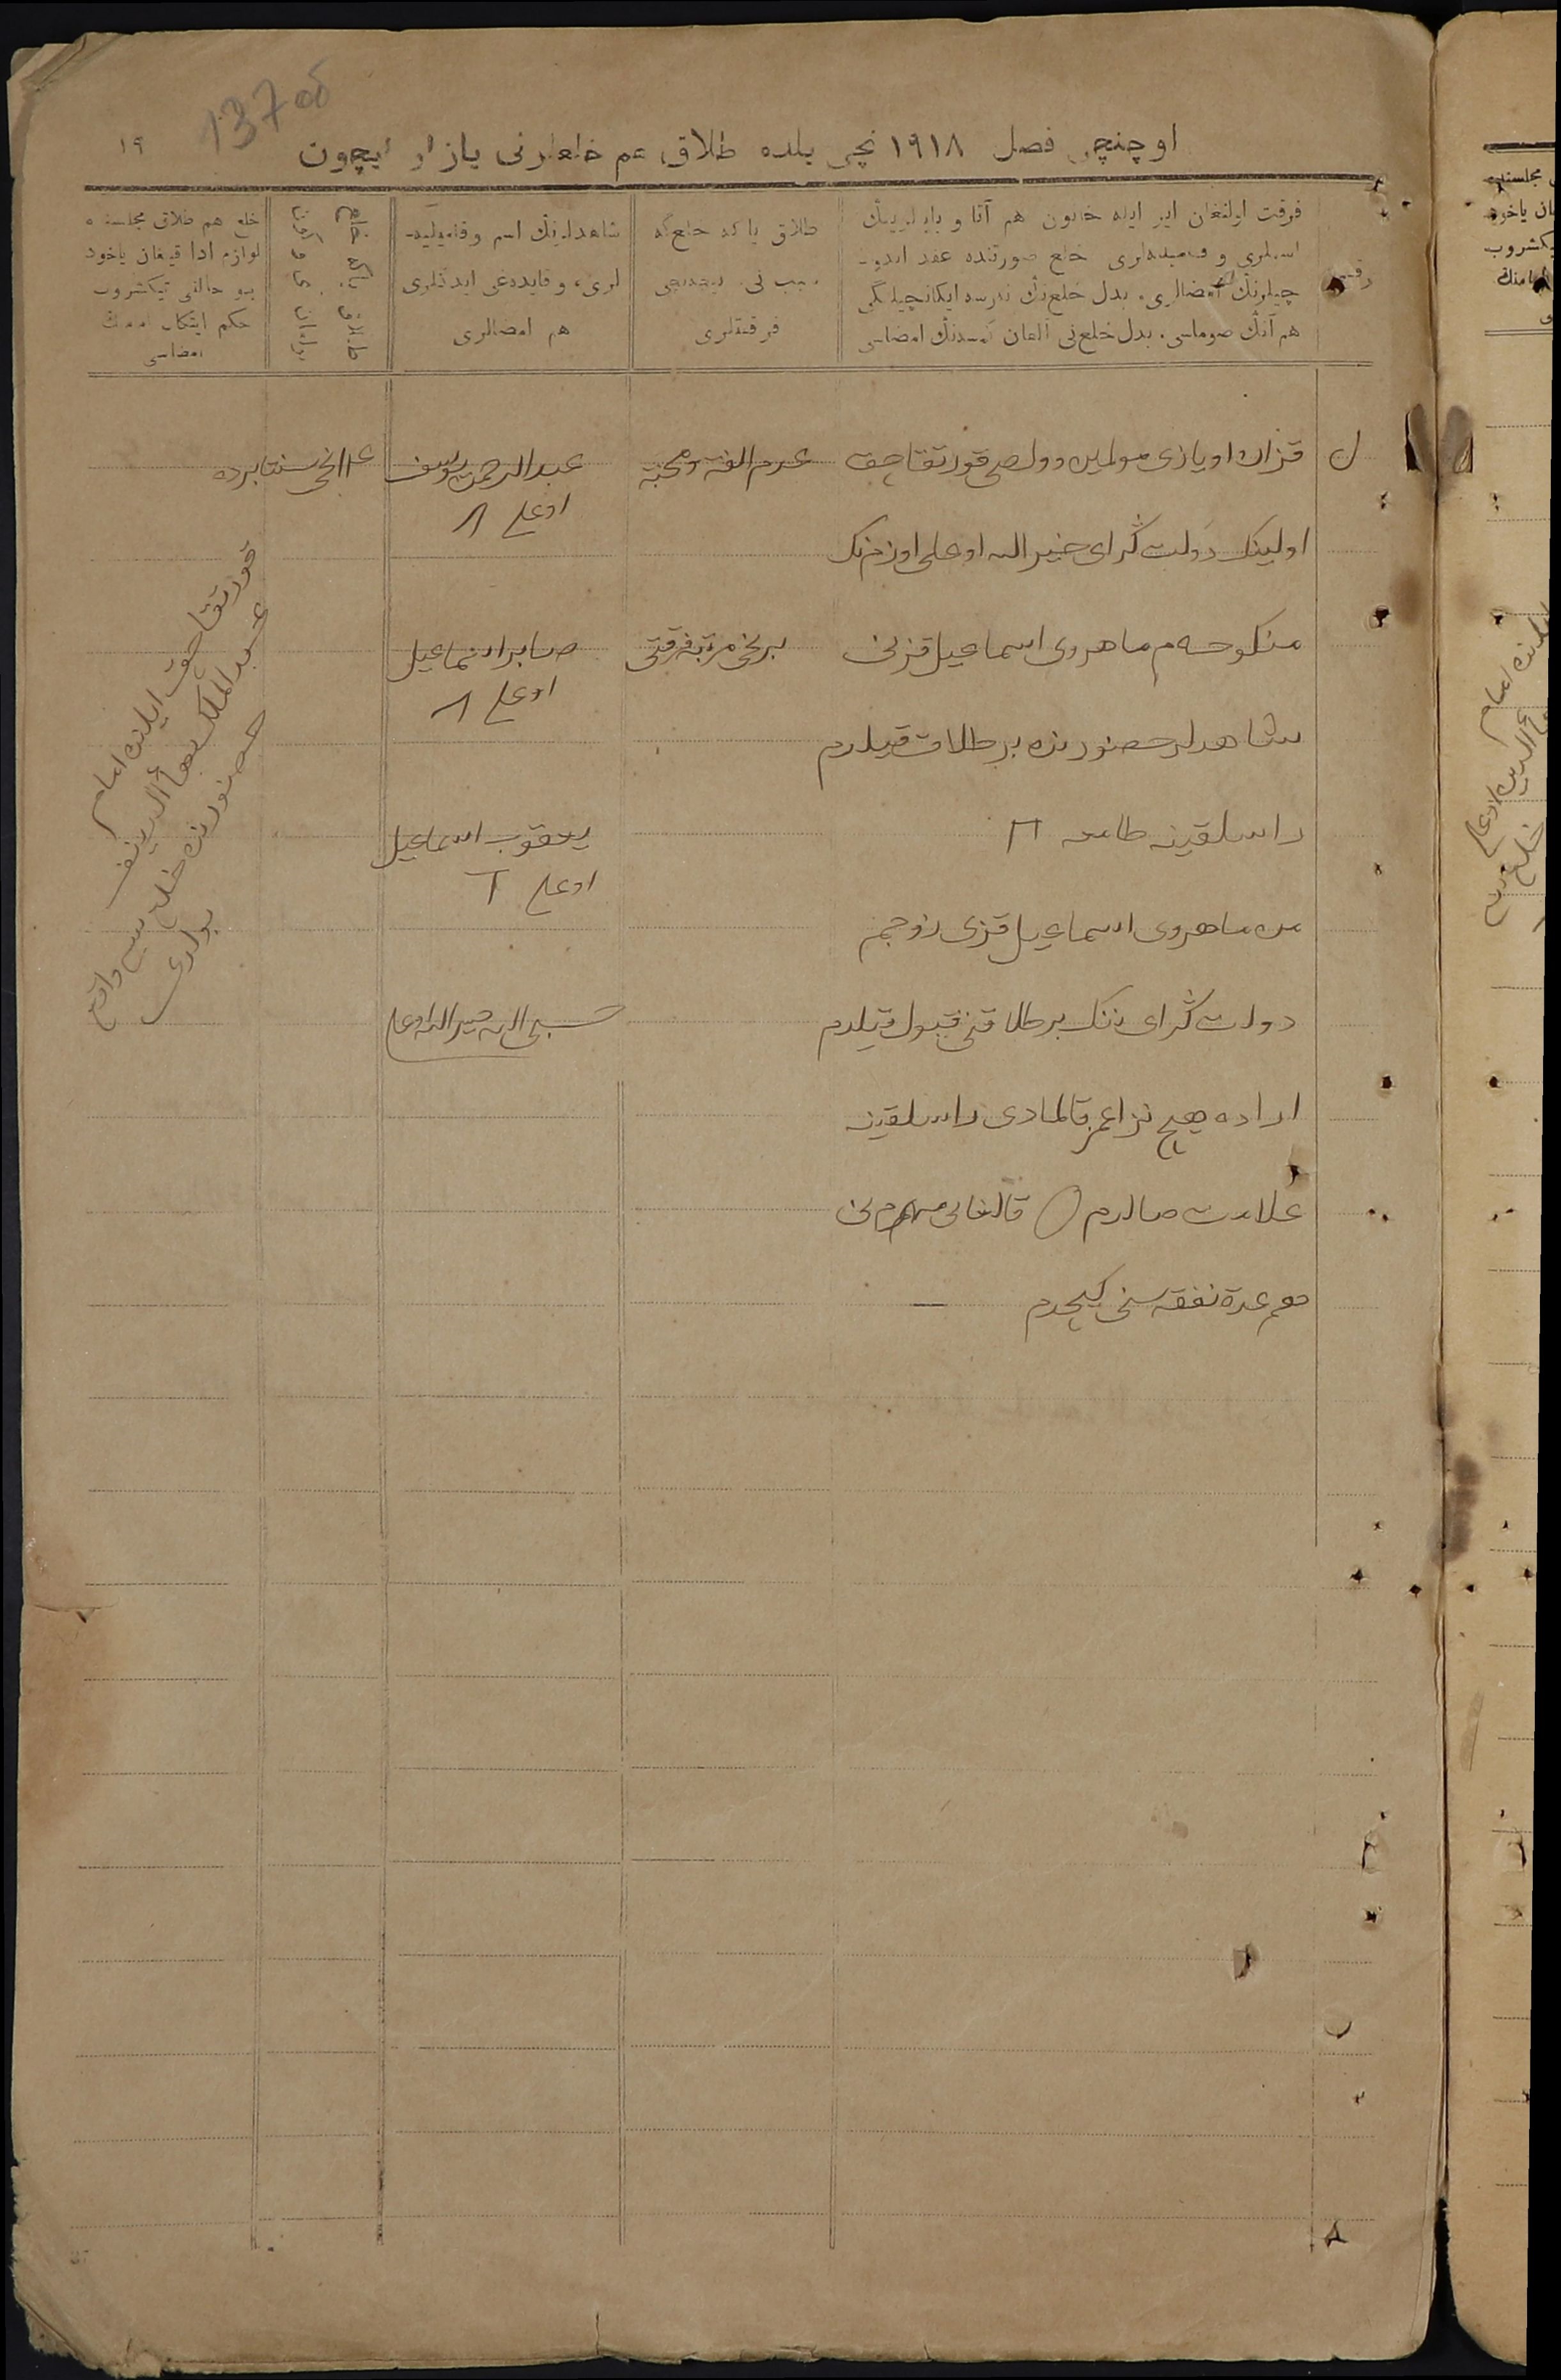 137 об
١٩
اوچنچی فصل ١٩١٨ نچی یلده طلاق هم خلعلرنی یازار ایچون
رقم
فرقت اولنغان ایر ایله خاتون هم آتا و بابالرینڭ
اسملری و فامیلیه‌لری خلع صورتنده عقد ایدو
چیلرنڭ امضالری، بدل خلع‌نڭ نرسه ایکانچیلگی
هم آنڭ صوماسی، بدل خلع‌نی آلغان کمسه‌نڭ امضاسی
طلاق یا که خلع گه
سبب نی، نیچه‌نچی
فرقتلری
شاهدلرنڭ اسم و فامیلیه
لری، و قایده‌غی ایدکلری
هم امضالری
خلع هم طلاق مجلسنده
لوازم ادا قیلغان یاخود
بو حالنی تیکشروب
حکم ایتکان امامنڭ
امضاسی
قزان اویازی مولمین وولصی قورتقاچق
اولینک دولت گرای خیرالله اوغلی اوزمنک
منکوحه‌م ماهروی اسماعیل قزنی
شاهدلر حضورنده بر طلاق قیلدم
راسلقینه طامغه
من ماهروی اسماعیل قزی زوجم
دولت گرای ننک بر طلاقنی قبول قیلدم
ارا ده هیچ نزاعمز قالمادی راسلقینه
علامت صالدم قالغان مهرم نی
هم عدة نفقه سنی کیچدم
عدم الفة و محبة
برنجی مرتبه فرقتی
عبدالرحمن یوسف
اوغلی
صابر اسماعیل
اوغلی
یعقوب اسماعیل
اوغلی
خیرالله اوغلی
١١ نچی سنتابرده
قورتقاچق ایلینده امام
عبدالملک بهاءالدینف
حضورنده خلع سیی واقع
بولدی